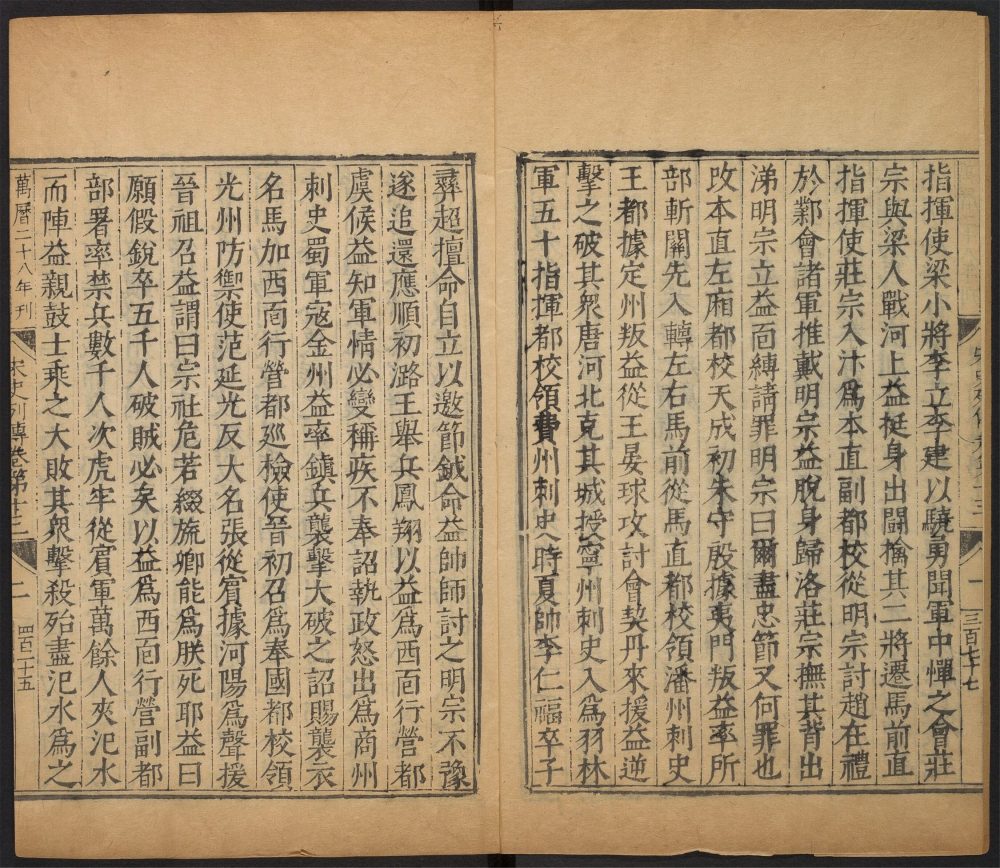 指揮使梁小將李立李建以驍勇聞軍中憚之會莊
宗與梁人戰河上益挺身出鬬擒其二將遷馬前直
指揮使莊宗入汴爲本直副都校從明宗討趙在禮
於鄴會諸軍推戴明宗益脫身歸洛莊宗撫其背出
涕明宗立益面縛請罪明宗曰爾盡忠節又何罪也
改本直左廂都校天成初朱守殷據夷門叛益率所
部斬關先入轉左右馬前從馬直都校領潘州刺史
王都據定州叛益從王晏球攻討會契丹來援益逆
擊之破其衆唐河北克其城授寧州刺史入爲羽林
軍五十指揮都校領費州刺史時夏帥李仁福卒子
彞超擅命自立以邀節鉞命益帥師討之明宗不豫
遂追還應順初潞王舉兵鳳翔以益爲西面行營都
虞候益知軍情必變稱疾不奉詔執政怒出爲商州
刺史蜀軍寇金州益率鎮兵襲擊大破之詔賜襲衣
名馬加西面行營都巡檢使晉初召爲奉國都校領
光州防禦使范延光反大名張從賓據河陽爲聲援
晉祖召益謂曰宗社危若綴旒卿能爲朕死耶益曰
願假銳卒五千人破賊必矣以益爲西面行營副都
部署率禁兵數千人次虎牢從賓軍萬餘人夾汜水
而陣益親鼓士乘之大敗其衆擊殺殆盡汜水爲之
萬曆二十八年刊
宋史列傳卷第十三
二
四百二十五
一
三百七十七